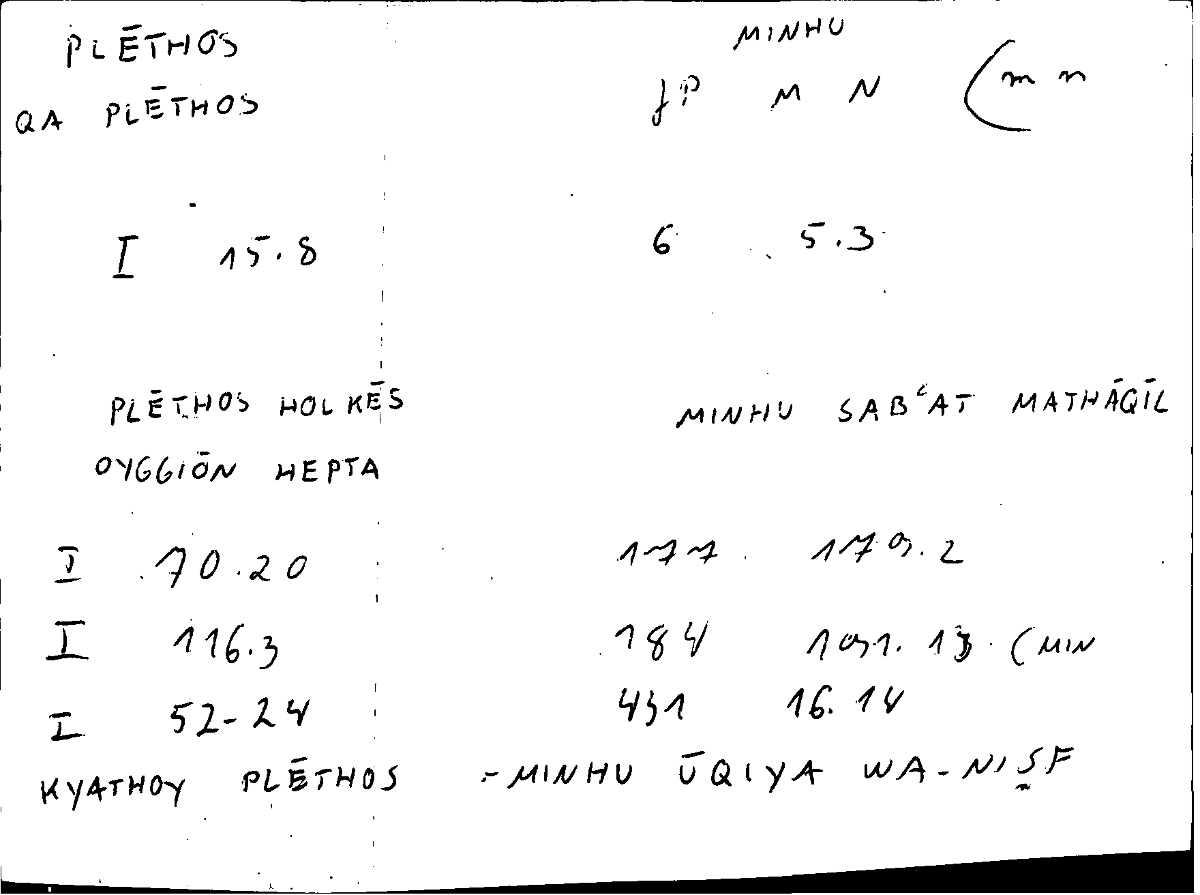 PLĒTHOS MINHU
QA PLĒTHOS M N (m n
I 15.8 6 5.3
PLĒTHOS HOLKĒS MINHU SABʿAT MATHĀQĪL
OYGGIŌN HEPTA
I 70.20 177 179.2
I 116.3 184 191. 13 (MIN
I 52-24 431 16.14
KYATHOY PLĒTHOS - MINHU ŪQIYA WA-NIṢF